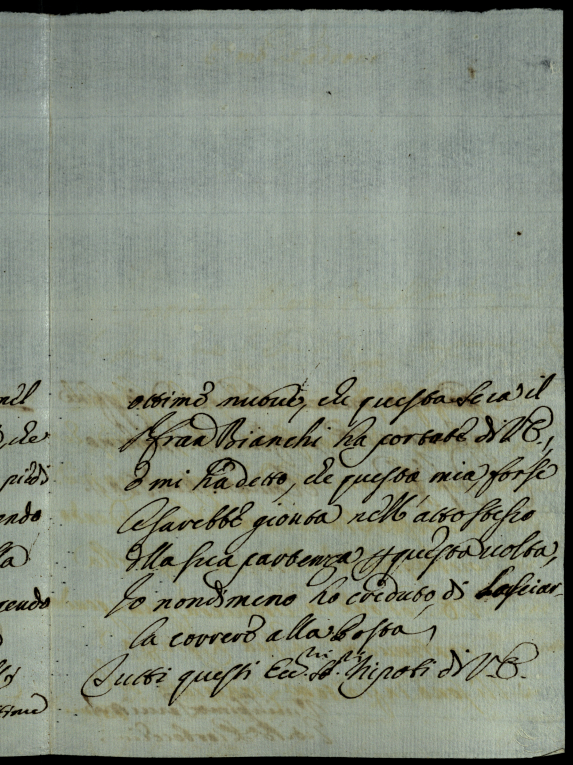 nel
che
piedi
endo
la
rendo
ottime nuove, che questa sera il
S.r Fran Bianchi ha portate di V.E.,
e mi ha detto, che questa mia forse
le sarebbe gionta nell'atto stesso
della sua partenza p questa volta,
Io nondimeno ho creduto di lasciar-
la correre alla Posta,
Tutti questi Ecc.mi SS.ri Nipoti di V.E.